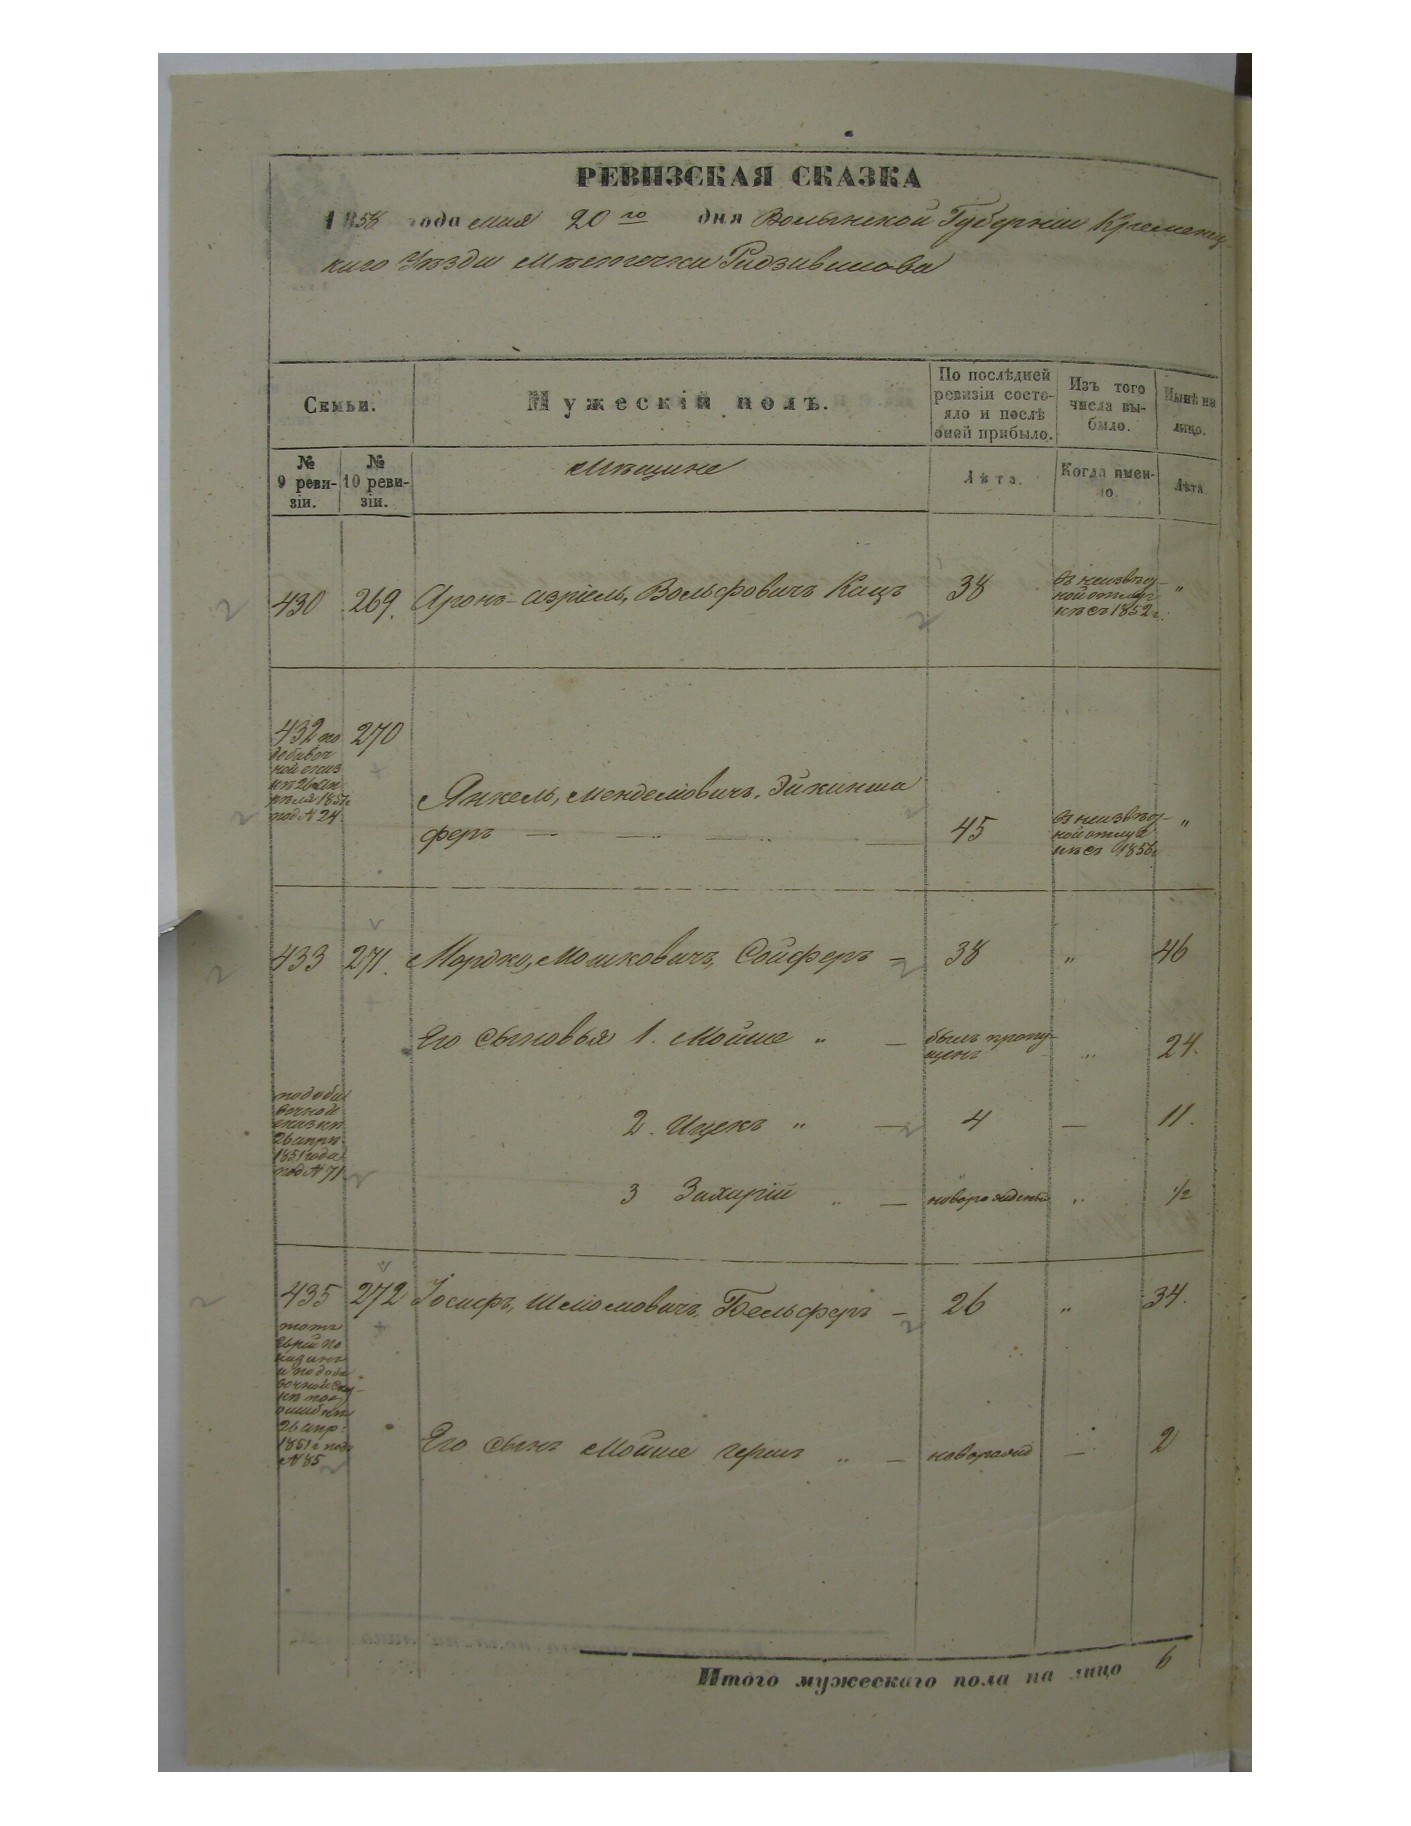 РЕВИЗСКАЯ СКАЗКА
1858 года мая 20го дня Волынской Губерніи Кременец-
каго Уѣзда Мѣстечка Радзивилова
Семьи.
Мужескій полъ.
По послѣдней ревизіи состояло и послѣ оней прибыло.
Изъ того числа выбыло.
Нынѣ на лицо.
№ 9 ревизіи.
№ 10 ревизіи.
Мѣщане
Лѣта.
Когда именно.
Лѣта
430 269. Аронъ-азріель, Вольфовичъ Кацъ 38 въ неизвѣст-
ной отлуч
кѣ съ 1852 г. "
432 по 270
добавоч
ной сказ
кѣ 26 ап
рѣля 1851г
под N 24.
Янкель, Менделіовичъ, Эйкинша
феръ — — — — 45 въ неизвѣст-
ной отлуч
кѣ съ 1856г "
433 271. Мордко, Мошковичъ, Сойферъ — 38 " 46
Его сыновья 1. Мойше " — былъ пропу-
щенъ " 24.
по доба
вочной
сказкѣ
26 апрѣ.
1851 года
под N 71
2. Ицекъ " — 4 — 11.
3 Захарій " — новорожденъ " 1/2
435 272 Іосифъ, Шліомовичъ, Бельферъ — 26 " 34.
и по доба
вочной ска-
26 апр:
1851 г подъ
N 85
Его сынъ Мойше герша " — новорожд — 2
Итого мужескаго пола на лицо 6